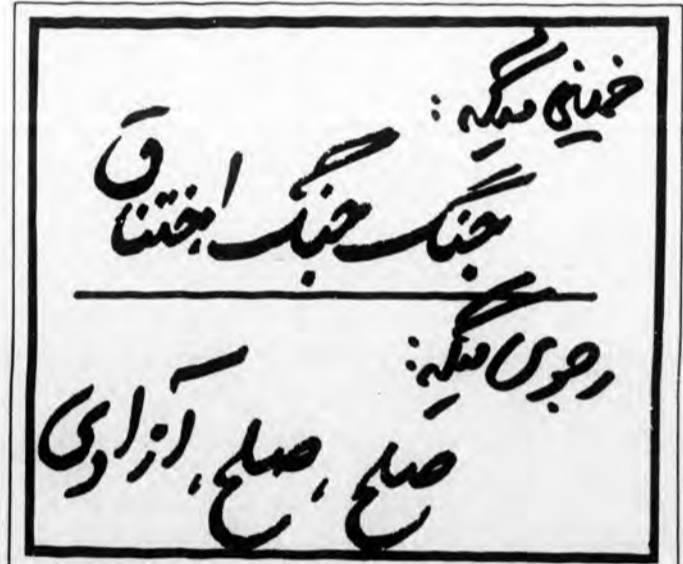 خمینی میگه:
جنگ جنگ اختناق
رجوی میگه:
صلح، صلح، آزادی